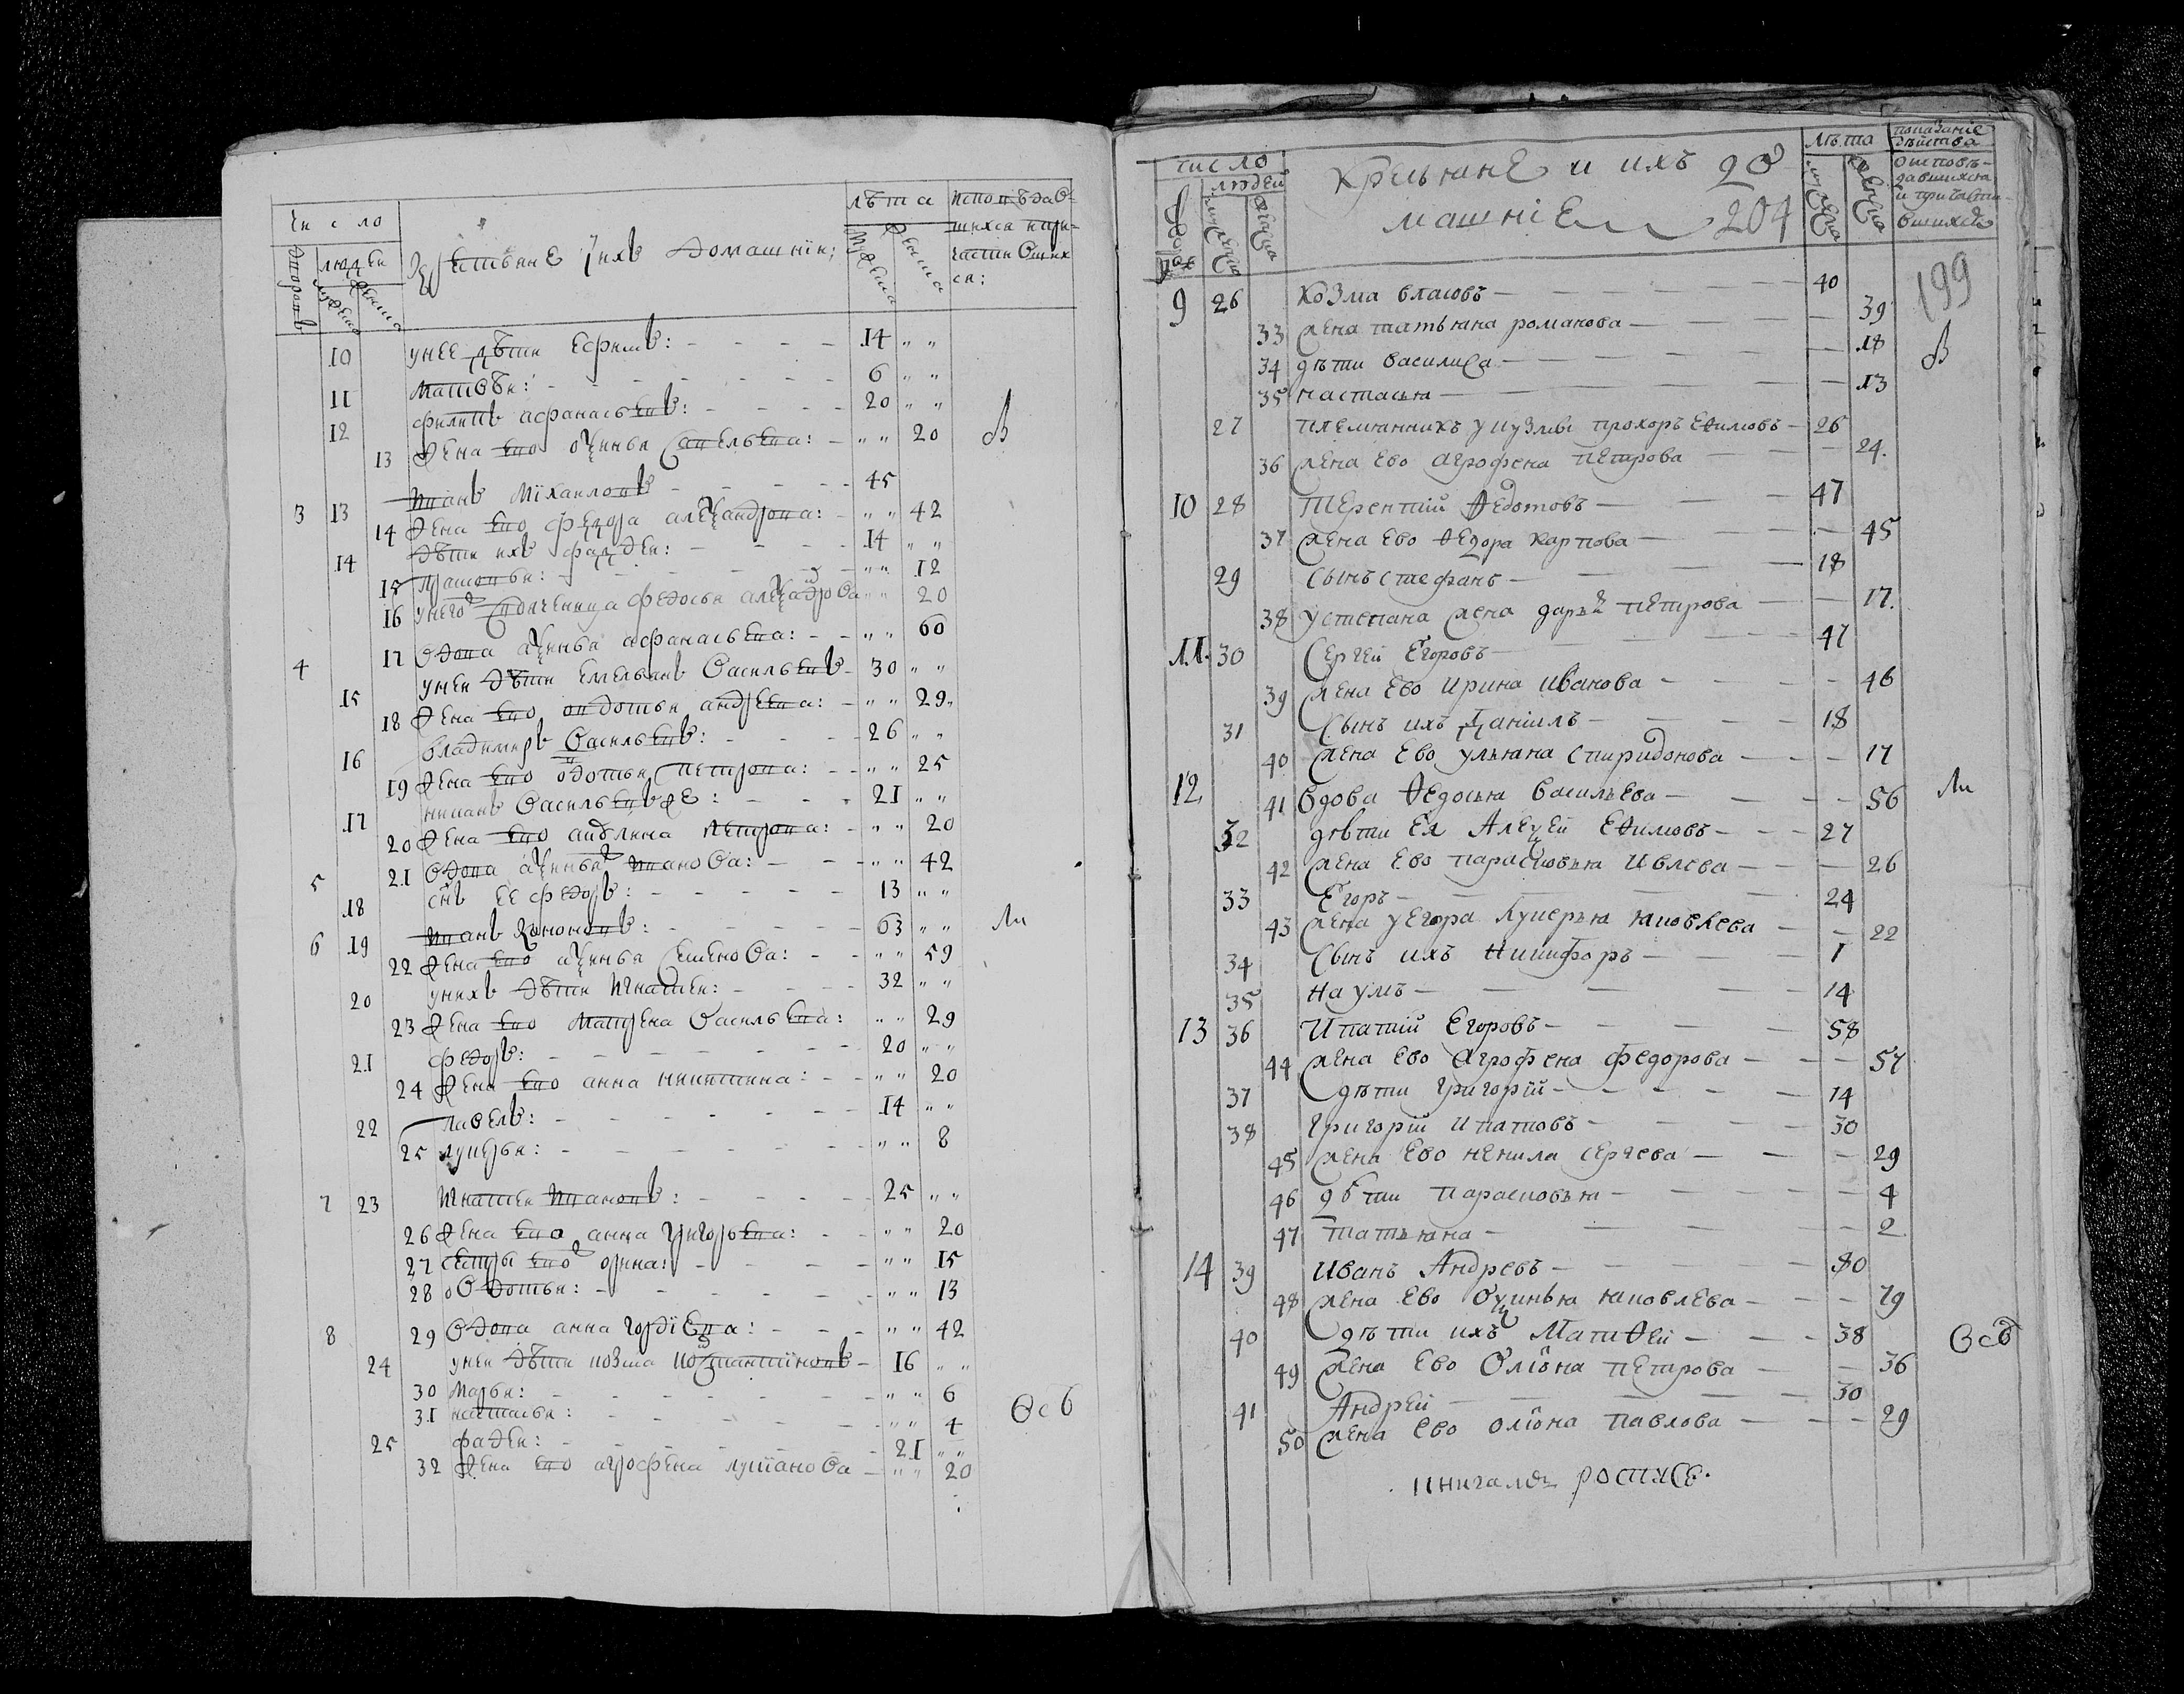 Число
Крестьяне і ихъ домашнїи:
лѣта
исповѣдав-
шихся и при-
частивших
ся:
дворовъ
людеи
мужеска
женска
мужеска
женска
10 у нее дѣти Ефимъ: 14 „ „
11 Матвѣи: 6 „ „
12 филипъ афанасьевъ: 20 „ „
13 жена ево оксинья савельева: „ „ 20
В
3 13 Иванъ Михаиловъ 45
14 жена ево федора александрова: „ „ 42
14 дѣти ихъ фаддеи: 14 „ „
15 „ „ 12
16 у него федосья „ „ 20
4 17 вдова аксинья афанасьева: „ „ 60
15 у неи дѣти Емельянъ Васильевъ 30 „ „
18 жена ево овдотья андреева: „ „ 29
16 владимиръ Васильевъ: 26 „ „
19 жена ево овдотья петрова: „ „ 25
17 Васильевъ же: 21 „ „
20 жена ево петрова: „ „ 20
5 21 вдова аксинья иванова: „ „ 42
18 снъ ее федоръ: 13 „ „
6 19 Иванъ : 63 „ „
Ли
22 жена ево аксинья семенова: „ „ 59
20 у нихъ дѣти Игнатеи: 32 „ „
23 жена ево Матрена Васильева: „ „ 29
21 федоръ: 20 „ „
24 жена ево анна никитина: „ „ 20
22 Павелъ: 14 „ „
25 лукерья: „ „ 8
7 23 Игнатеи Ивановъ: 25 „ „
26 жена ево анна григорьева: „ „ 20
27 сестры ево орина: „ „ 15
28 овдотья: „ „ 13
8 29 вдова анна гордїева: „ „ 42
24 у неи дѣти козма 16 „ „
30 Марья: „ „ 6
31 настасья: „ „ 4
Всѣ
25 фадеи: 21 „ „
32 жена ево агрофена лукїанова „ „ 20
число
людей
Крестьяне и ихъ до
машніе 204
лѣта
показаніе
дѣйства
исповѣ-
давшихся
и причасти-
вшихся
199
9 26 Козма власовъ 40
33 жена татьяна романова 39
34 дѣти василиса 18
В
35 настасья 13
27 племянникъ у кузмы прохоръ Ефимовъ 26
36 жена ево агрофена петрова 24.
10 28 Терентій Федотовъ 47
37 жена ево Федора карпова 45
29 сынъ стефанъ 18
38 у степана жена дарья петрова 17.
11. 30 Сергей Егоровъ 47
39 жена ево ирина иванова 46
31 Сынъ ихъ Даніилъ 18
40 жена ево ульяна спиридонова 17
12 41 вдова Федосья васильева 56
Ли
32 дѣти ея Алексей Ефимовъ 27
42 жена ево парасковья ивлева 26
33 Егоръ 24
43 жена у егора лукерья яковлева 22
34 Сынъ ихъ никифоръ 1
35 наумъ 14
13 36 Ипатій Егоровъ 58
44 жена ево агрофена федорова 57
37 дѣти григорій 14
38 григорій ипатовъ 30
45 жена ево ненила сергеева 29
46 дѣти парасковья 4
47 татьяна 2
14 39 Иванъ Андревъ 80
48 жена ево оксинья яковлева 79
40 дѣти ихъ Матфей 38
Всѣ
49 жена ево олiона петрова 36
41 Андрей 30
50 жена ево олiона павлова 29